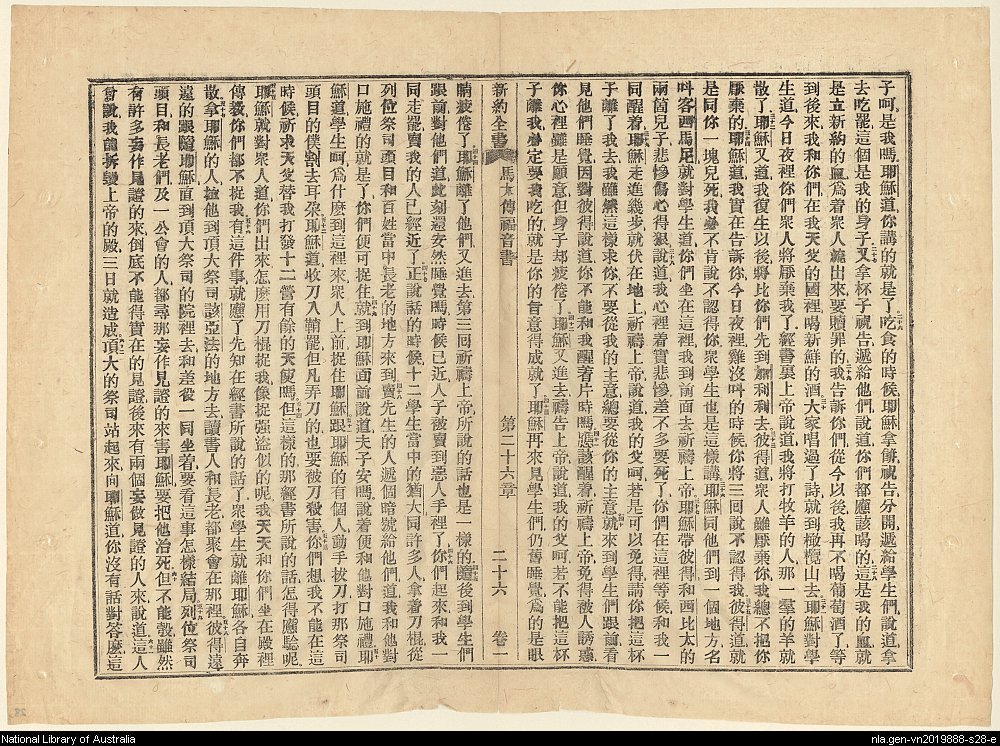 子呵是我嗎耶穌道你講的就是了吃食的時候耶穌拿餅祝告分開遞給學生們說道拿
去吃罷這個是我的身子又拿杯子祝告遞給他們說道你們都應該喝的這是我的血就
是立新約的血爲着衆人流出來要贖罪的我告訴你們從今以後我再不喝葡萄酒了等
到後來我和你們在我天父的國裡喝新鮮的酒大家唱過了詩就到橄欖山去耶穌對學
生道今日夜裡你們衆人將厭棄我了經書裏上帝說道我將打牧羊的人那一羣的羊就
散了耶穌又道我復生以後將比你們先到加利利去彼得道衆人雖厭棄你我總不把你
厭棄的耶穌道我實在告訴你今日夜裡雞沒呌的時候你將三回說不認得我彼得道就
是同你一塊兒死我必不肯說不認得你衆學生也是這樣講耶穌同他們到一個地方名
呌客西馬尼就對學生道你們坐在這裡我到前面去祈禱上帝耶穌帶彼得和西比太的
兩箇兒子悲慘傷心得狠說道我心裡着實悲慘差不多要死了你們在這裡等候和我一
同醒着耶穌走進幾步就伏在地上祈禱上帝說道我的父呵若是可以免得請你把這杯
子離了我去我雖然這樣求你不要從我的主意總要從你的主意就來到學生們跟前看
見他們睡覺因對彼得說道你不能和我醒着片時嗎應該醒着祈禱上帝免得被人誘惑
你心裡雖是願意但身子却疲倦了耶穌又進去禱告上帝說道我的父呵若不能把這杯
子離我必定要我吃的就是你的旨意得成就了耶穌再來見學生們仍舊睡覺爲的是眼
新約全書 馬太傳福音書 第二十六章 二十六 卷一
睛疲倦了耶穌離了他們又進去第三回祈禱上帝所說的話也是一樣的隨後到學生們
跟前對他們道此刻還安然睡覺嗎時候已近人子被賣到惡人手裡了你們起來和我一
同走罷賣我的人已經近了正說話的時候十二學生當中的猶大同許多人拿着刀棍從
列位祭司頭目和百姓當中長老的地方來到賣先生的人遞個暗號給他們道我和他對
口施禮的就是了你們便可捉住就到耶穌面前說道夫子安嗎說着便和他對口施禮耶
穌道學生呵爲什麽到這裡來衆人上前捉住耶穌跟耶穌的有個人動手拔刀打那祭司
頭目的僕割去耳朵耶穌道收刀入鞘罷但凡弄刀的也要被刀殺害你們想我不能在這
時候祈求天父替我打發十二營有餘的天使嗎但這樣的那經書所說的話怎得應驗呢
耶穌就對衆人道你們出來怎麽用刀棍捉我像捉強盜似的呢我天天和你們坐在殿裡
傳敎你們都不捉我有這件事就應了先知在經書所說的話了衆學生就離耶穌各自奔
散拿耶穌的人拉他到頂大祭司該亞法的地方去讀書人和長老都聚會在那裡彼得遠
遠的跟隨耶穌直到頂大祭司的院裡去和差役一同坐着要看這事怎樣結局列位祭司
頭目和長老們及一公會的人都尋那妄作見證的來害耶穌要把他治死但不能彀雖然
有許多妄作見證的來倒底不能得實在的見證後來有兩個妄做見證的人來說道這人
曾說我能拆毀上帝的殿三日就造成頂大的祭司站起來向耶穌道你沒有話對答麽這
National Library of Australia
nla.gen-vn2019888-s28-e